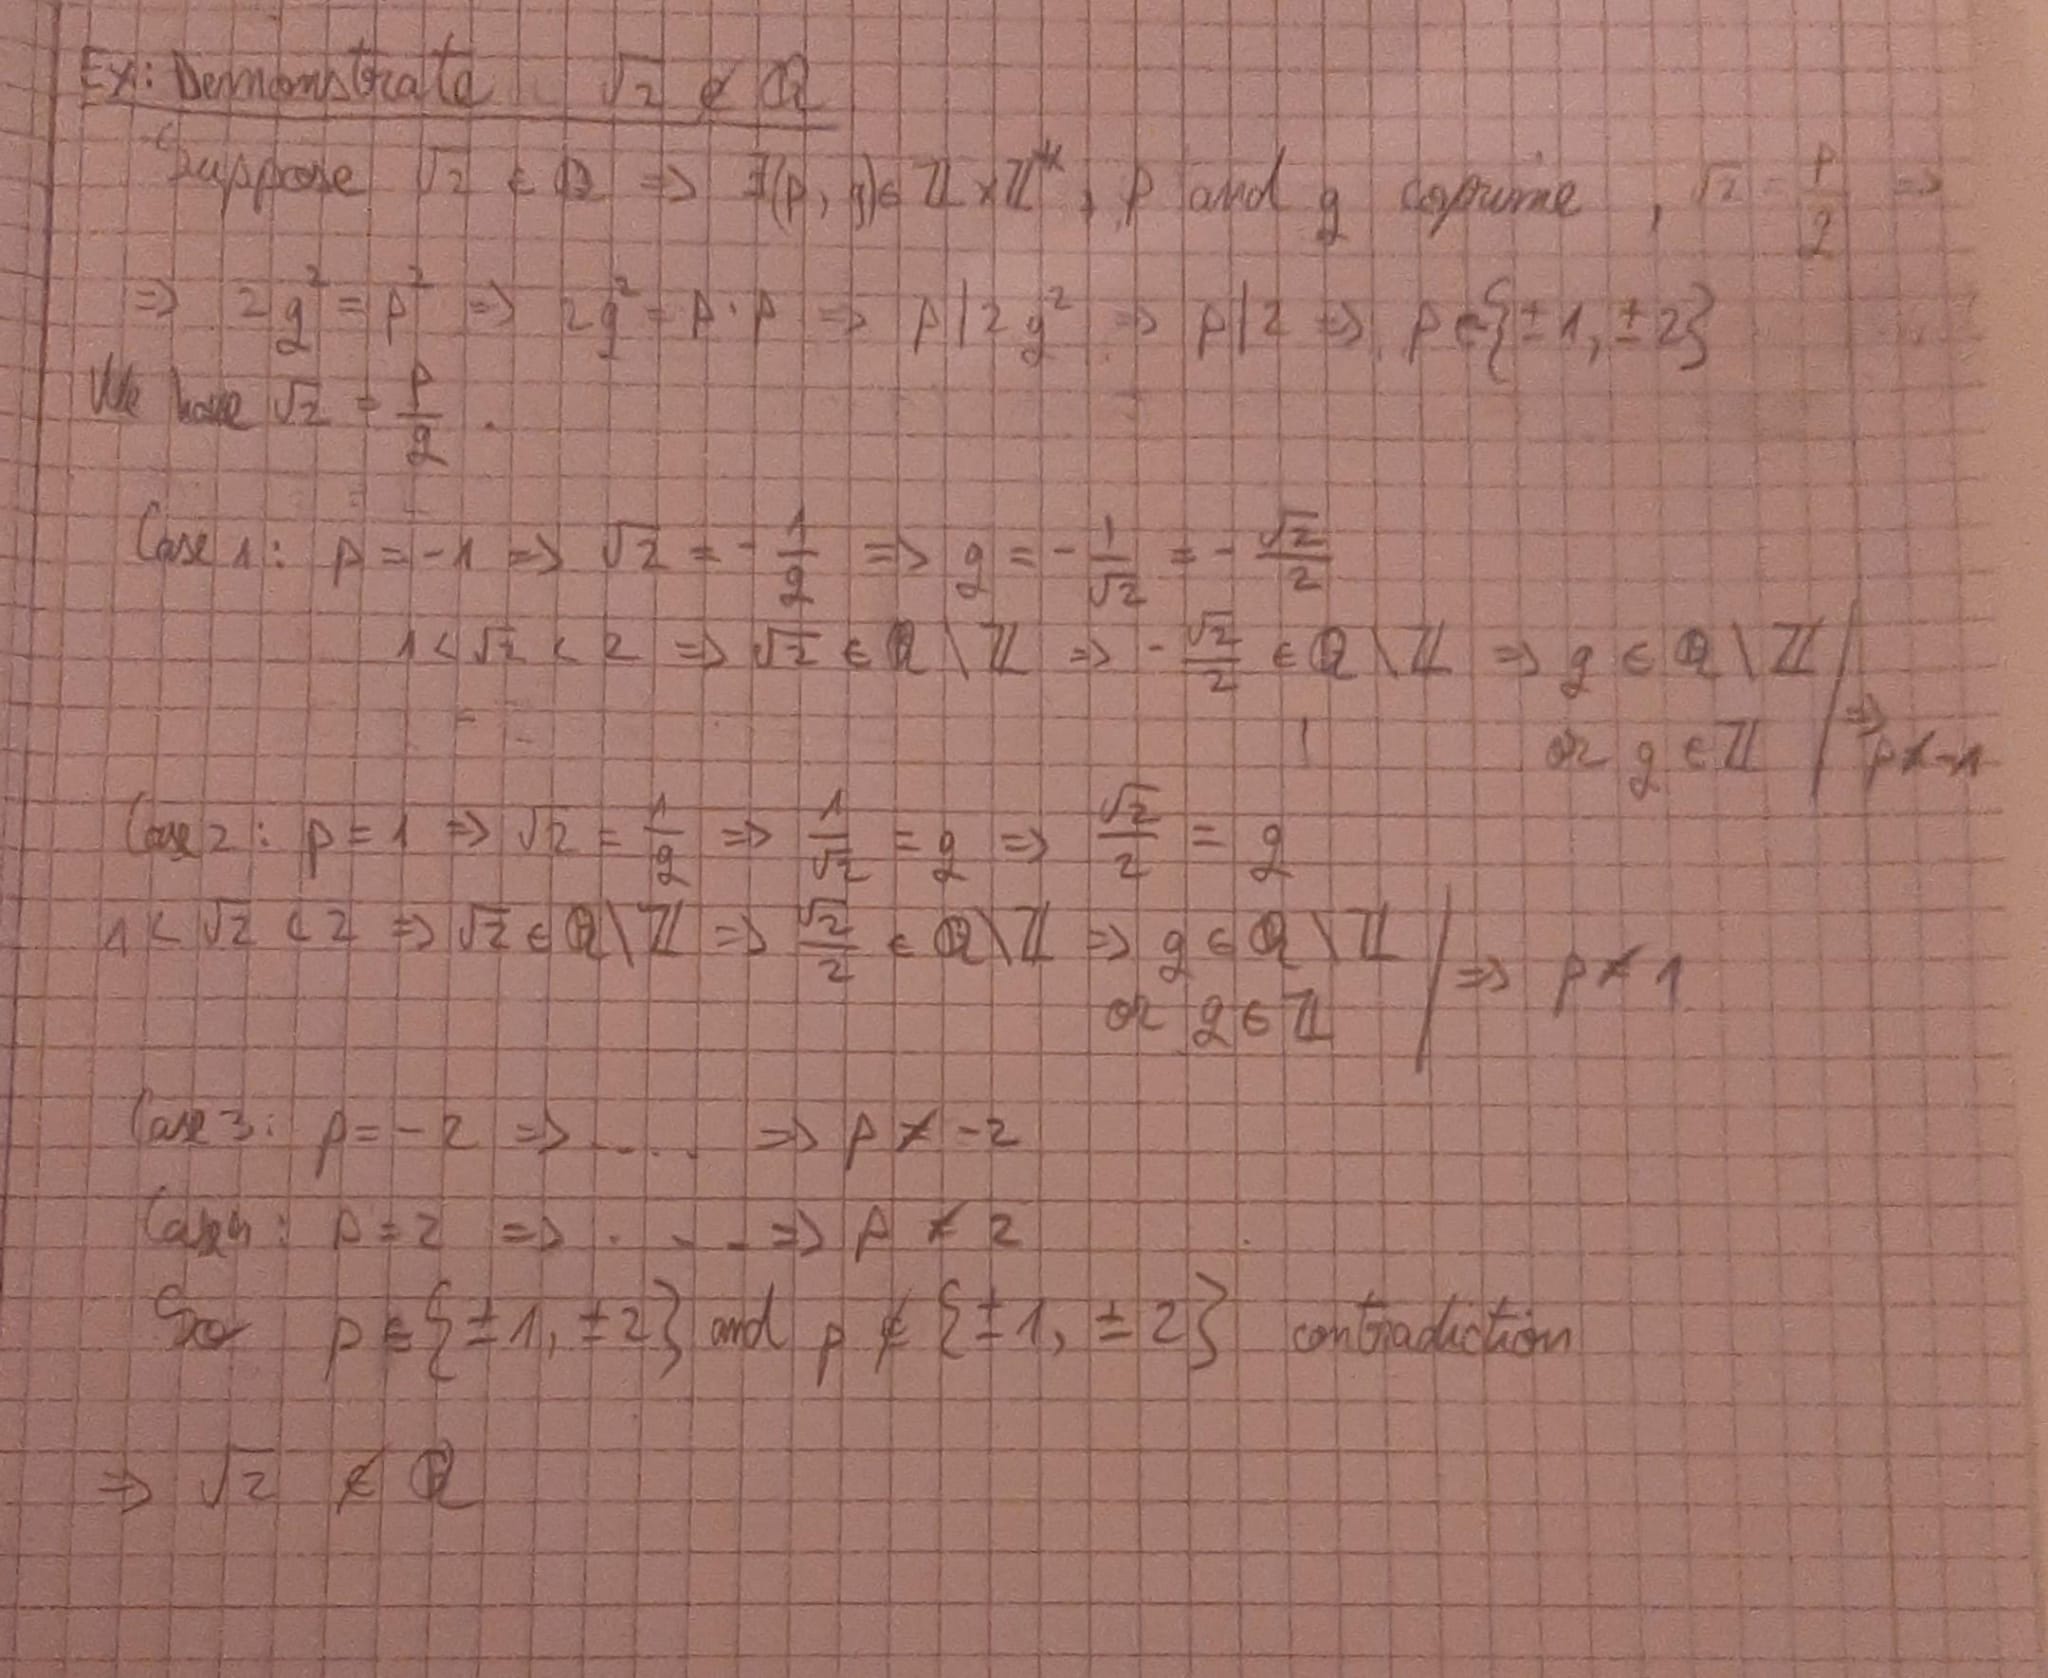 Ex: Demonstrate √2 ∉ ℚ
Suppose √2 ∈ ℚ => ∃(p, q) ∈ ℤ × ℤ*, p and q coprime, √2 = p/q =>
=> 2q² = p² => 2q² = p · p => p | 2q² => p | 2 => p ∈ {±1, ±2}
We have √2 = p/q .
Case 1: p = -1 => √2 = - 1/q => q = - 1/√2 = - √2/2
1 < √2 < 2 => √2 ∈ ℚ \ ℤ => - √2/2 ∈ ℚ \ ℤ => q ∈ ℚ \ ℤ
or q ∈ ℤ | => p ≠ -1
Case 2: p = 1 => √2 = 1/q => 1/√2 = q => √2/2 = q
1 < √2 < 2 => √2 ∈ ℚ \ ℤ => √2/2 ∈ ℚ \ ℤ => q ∈ ℚ \ ℤ
or q ∈ ℤ | => p ≠ 1
Case 3: p = -2 => .... => p ≠ -2
Case 4: p = 2 => .... => p ≠ 2
So p ∈ {±1, ±2} and p ∉ {±1, ±2} contradiction
=> √2 ∉ ℚ